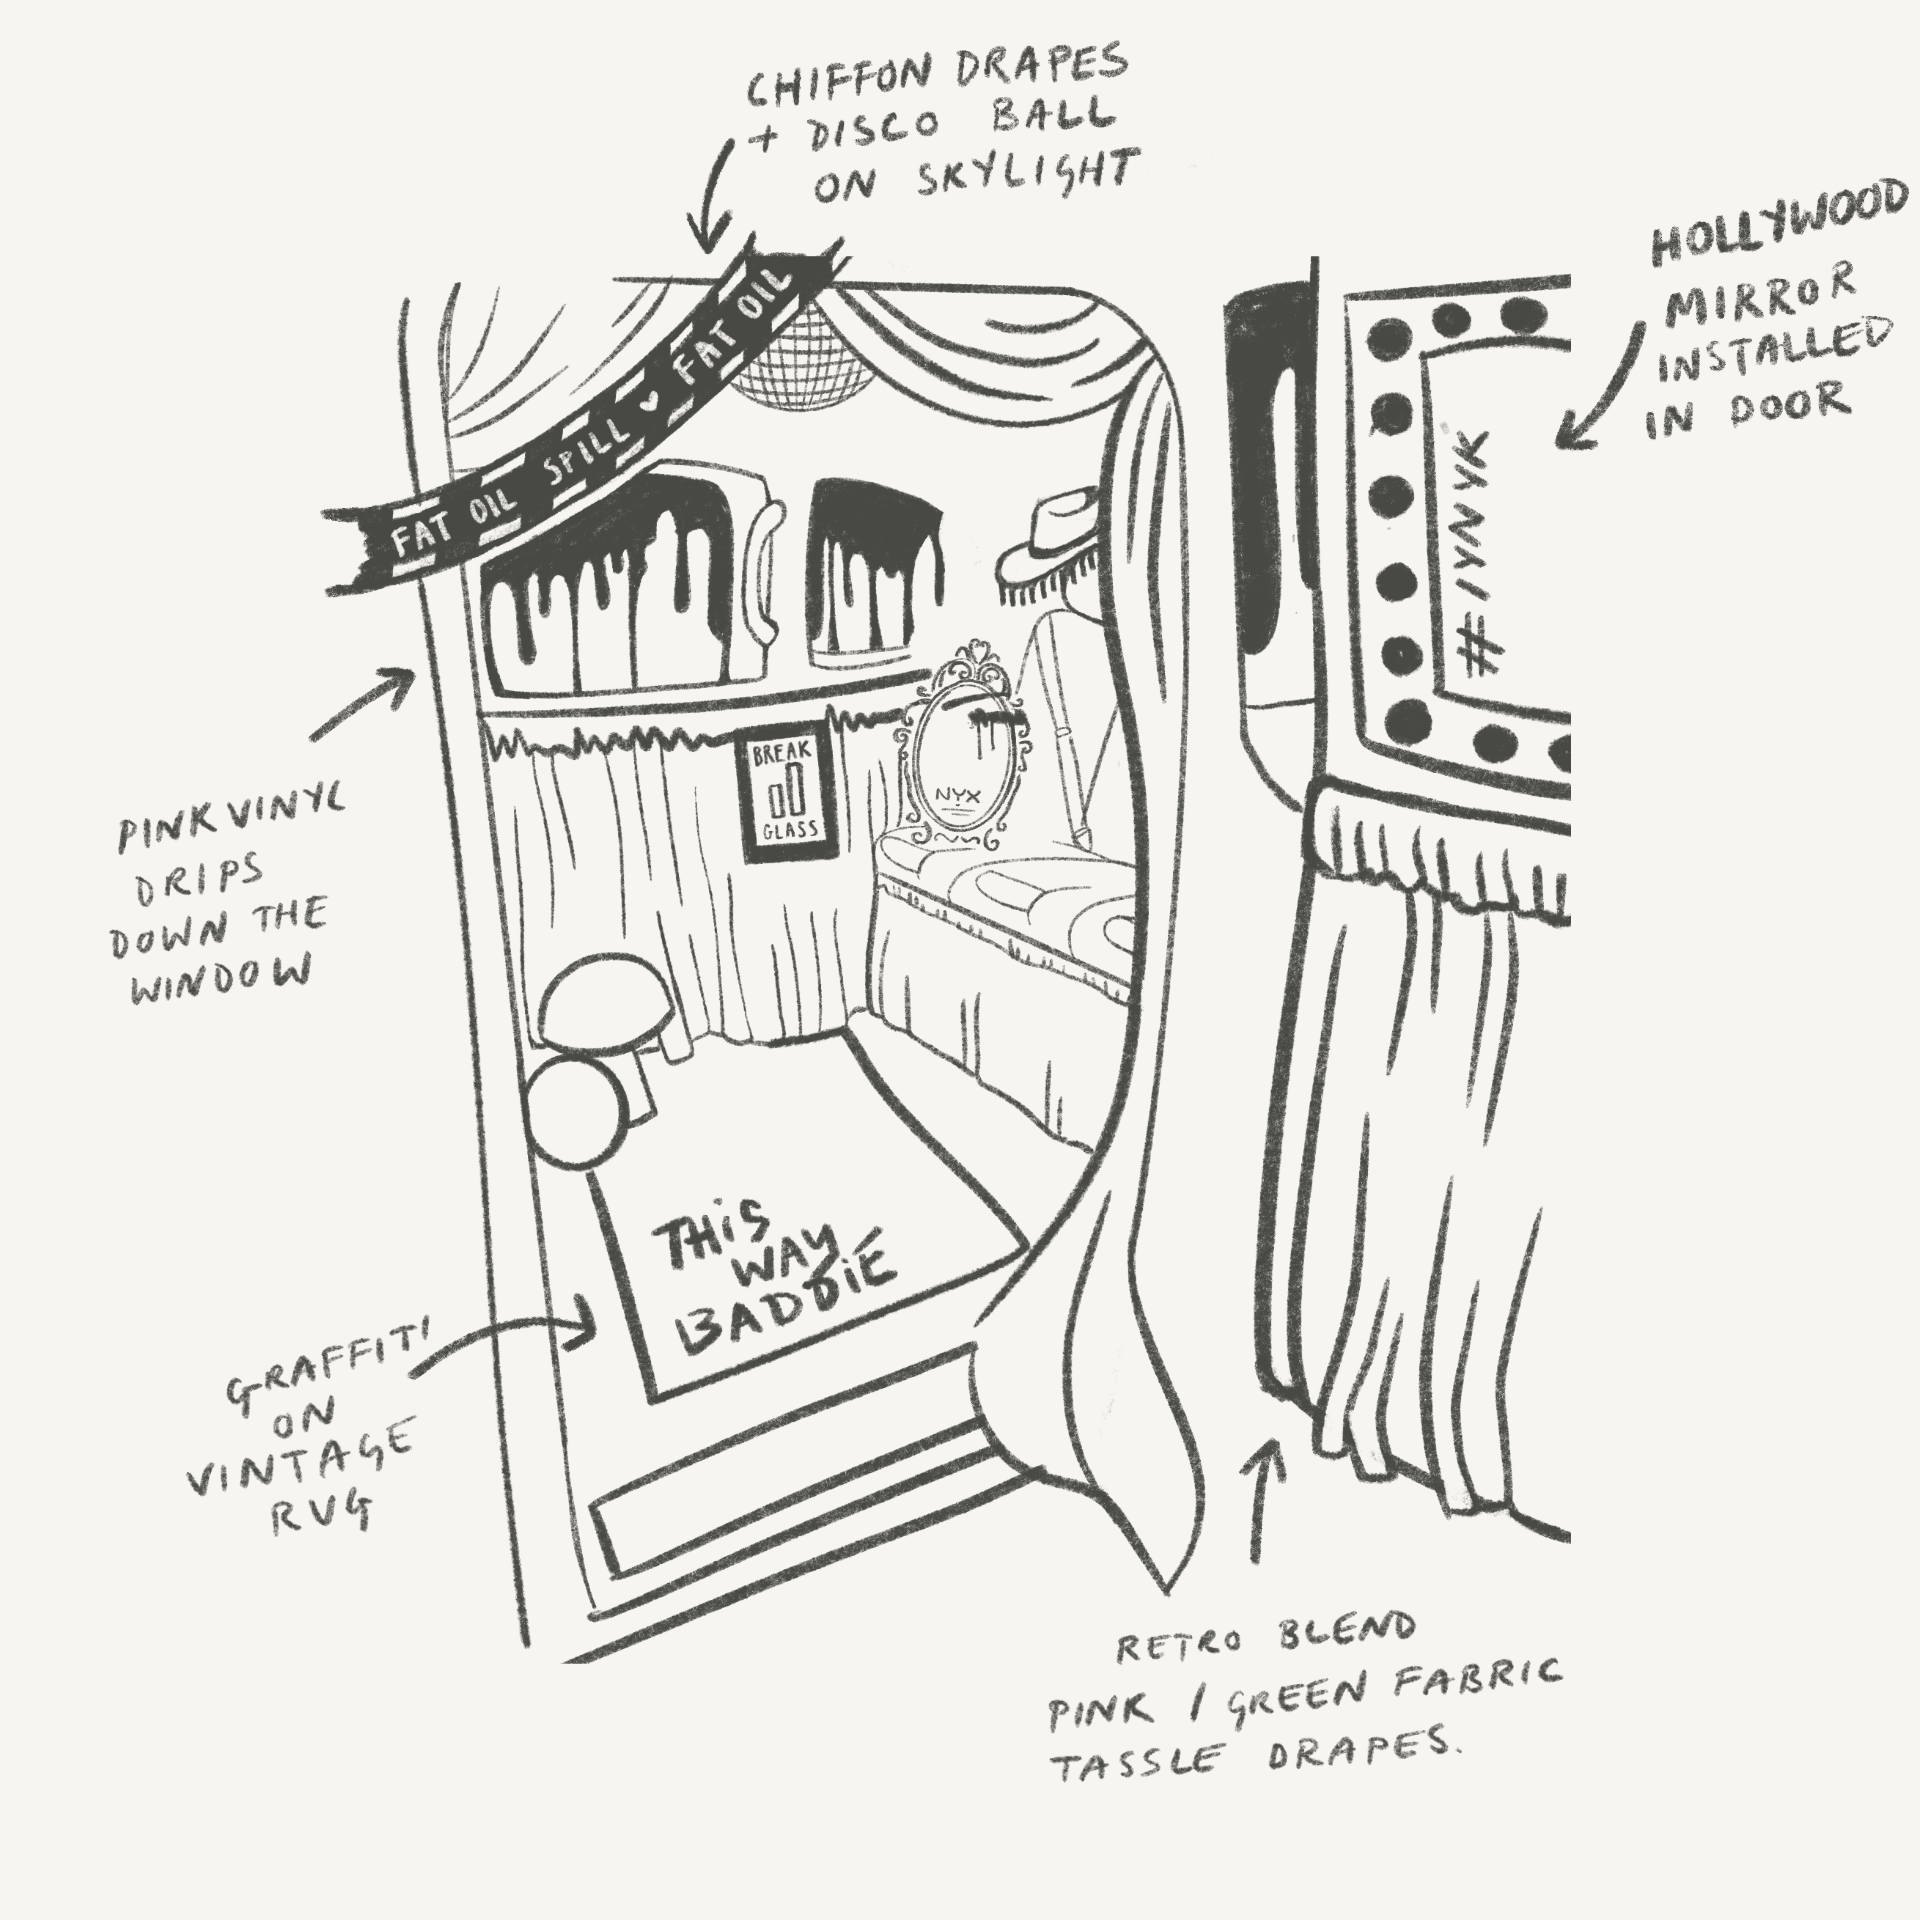 CHIFFON DRAPES
+ DISCO BALL
ON SKYLIGHT
HOLLYWOOD
MIRROR
INSTALLED
IN DOOR
FAT OIL SPILL ♥ FAT OIL
#IYNYK
BREAK
GLASS
NYX
PINK VINYL
DRIPS
DOWN THE
WINDOW
THIS
WAY
BADDIE
GRAFFITI
ON
VINTAGE
RUG
RETRO BLEND
PINK / GREEN FABRIC
TASSLE DRAPES.